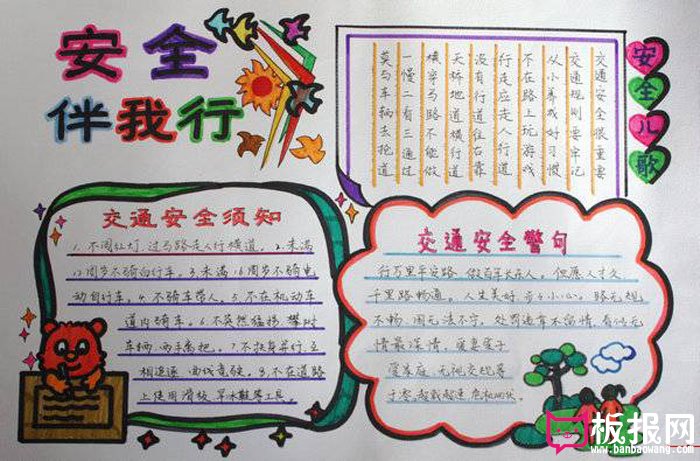 安全
伴我行
安全儿歌
交通安全很重要
交通规则要牢记
从小养成好习惯
不在路上玩游戏
行走应走人行道
没有行道往右靠
天桥地道横行道
横穿马路不能做
一慢二看三通过
莫与车辆去抢道
交通安全须知
1.不闯红灯,过马路走人行横道。2.未满
12周岁不骑自行车。3.未满16周岁不骑电
动自行车。4.不骑车带人。5.不在机动车
道内骑车。6.不突然猛拐,攀附
车辆,双手离把。7.不扶身并行,互
相追逐,曲线竞驶。8.不在道路
上使用滑板,旱冰鞋等工具。
交通安全警句
行万里平安路,做百年长在人。但愿人长久,
千里路畅通。人生美好,步步小心。路无规
不畅,国无法不守,处罚违章不留情,看似无
情最深情,爱妻爱子
爱家庭,无视交规等
于零,超载超速,危机四伏。
板报网
www.banbaowang.com